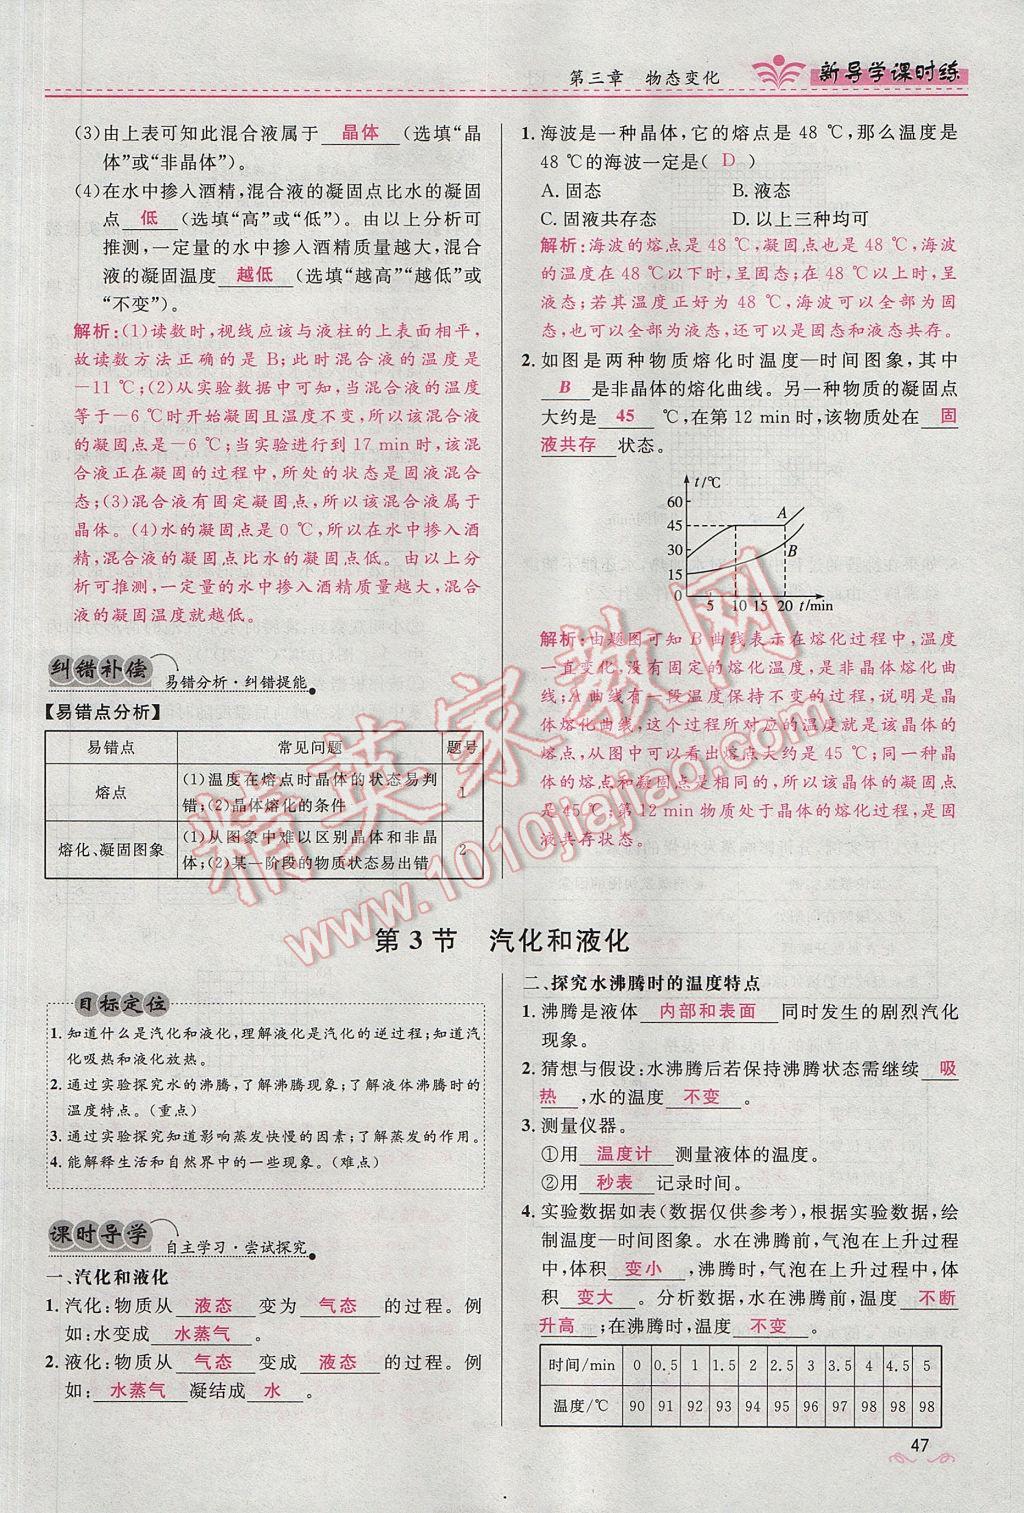 第三章 物态变化
新导学课时练
(3)由上表可知此混合液属于 晶体 (选填“晶
体”或“非晶体”)。
(4)在水中掺入酒精,混合液的凝固点比水的凝固
点 低 (选填“高”或“低”)。由以上分析可
推测,一定量的水中掺入酒精质量越大,混合
液的凝固温度 越低 (选填“越高”“越低”或
“不变”)。
解析:(1)读数时,视线应该与液柱的上表面相平,
故读数方法正确的是 B;此时混合液的温度是
−11 ℃;(2)从实验数据中可知,当混合液的温度
等于−6 ℃时开始凝固且温度不变,所以该混合液
的凝固点是−6 ℃;当实验进行到 17 min 时,该混
合液正在凝固的过程中,所处的状态是固液混合
态;(3)混合液有固定凝固点,所以该混合液属于
晶体。(4)水的凝固点是 0 ℃,所以在水中掺入酒
精,混合液的凝固点比水的凝固点低。由以上分
析可推测,一定量的水中掺入酒精质量越大,混合
液的凝固温度就越低。
纠错补偿
易错分析·纠错提能
【易错点分析】
易错点 常见问题 题号
熔点 (1)温度在熔点时晶体的状态易判
错;(2)晶体熔化的条件 1
熔化、凝固图象 (1)从图象中难以区别晶体和非晶
体;(2)某一阶段的物质状态易出错 2
1. 海波是一种晶体,它的熔点是 48 ℃,那么温度是
48 ℃的海波一定是( D )
A. 固态 B. 液态
C. 固液共存态 D. 以上三种均可
解析:海波的熔点是 48 ℃,凝固点也是 48 ℃,海波
的温度在 48 ℃以下时,呈固态;在 48 ℃以上时,呈
液态;若其温度正好为 48 ℃,海波可以全部为固
态,也可以全部为液态,还可以是固态和液态共存。
2. 如图是两种物质熔化时温度—时间图象,其中
B 是非晶体的熔化曲线。另一种物质的凝固点
大约是 45 ℃,在第 12 min 时,该物质处在 固
液共存 状态。
t/℃
60
45
30
15
A
B
5 10 15 20 t/min
解析:由题图可知 B 曲线表示在熔化过程中,温度
一直变化,没有固定的熔化温度,是非晶体熔化曲
线;A 曲线有一段温度保持不变的过程,说明是晶
体熔化曲线,这个过程所对应的温度就是该晶体的
熔点,从图中可以看出熔点大约是 45 ℃;同一种晶
体的熔点和凝固点是相同的,所以该晶体的凝固点
是 45 ℃。第 12 min 物质处于晶体的熔化过程,是固
液共存状态。
第 3 节 汽化和液化
目标定位
1. 知道什么是汽化和液化,理解液化是汽化的逆过程;知道汽
化吸热和液化放热。
2. 通过实验探究水的沸腾,了解沸腾现象;了解液体沸腾时的
温度特点。(重点)
3. 通过实验探究知道影响蒸发快慢的因素;了解蒸发的作用。
4. 能解释生活和自然界中的一些现象。(难点)
课时导学
自主学习·尝试探究
一、汽化和液化
1. 汽化:物质从 液态 变为 气态 的过程。例
如:水变成 水蒸气 。
2. 液化:物质从 气态 变成 液态 的过程。例
如: 水蒸气 凝结成 水 。
二、探究水沸腾时的温度特点
1. 沸腾是液体 内部和表面 同时发生的剧烈汽化
现象。
2. 猜想与假设:水沸腾后若保持沸腾状态需继续 吸
热 ,水的温度 不变 。
3. 测量仪器。
①用 温度计 测量液体的温度。
②用 秒表 记录时间。
4. 实验数据如表(数据仅供参考),根据实验数据,绘
制温度—时间图象。水在沸腾前,气泡在上升过程
中,体积 变小 ,沸腾时,气泡在上升过程中,体
积 变大 。分析数据,水在沸腾前,温度 不断
升高 ;在沸腾时,温度 不变 。
时间/min 0 0.5 1 1.5 2 2.5 3 3.5 4 4.5 5
温度/℃ 90 91 92 93 94 95 96 97 98 98 98
47
精英家教网
www.1010jiajiao.com